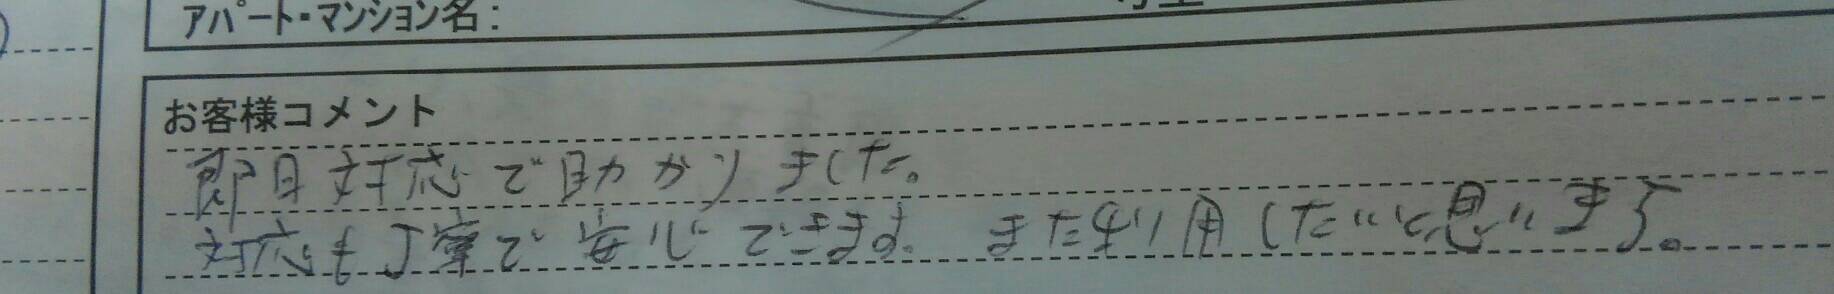 アパート・マンション名:
お客様コメント
即日対応で助かりました。
対応も丁寧で安心できます。また利用したいと思います。